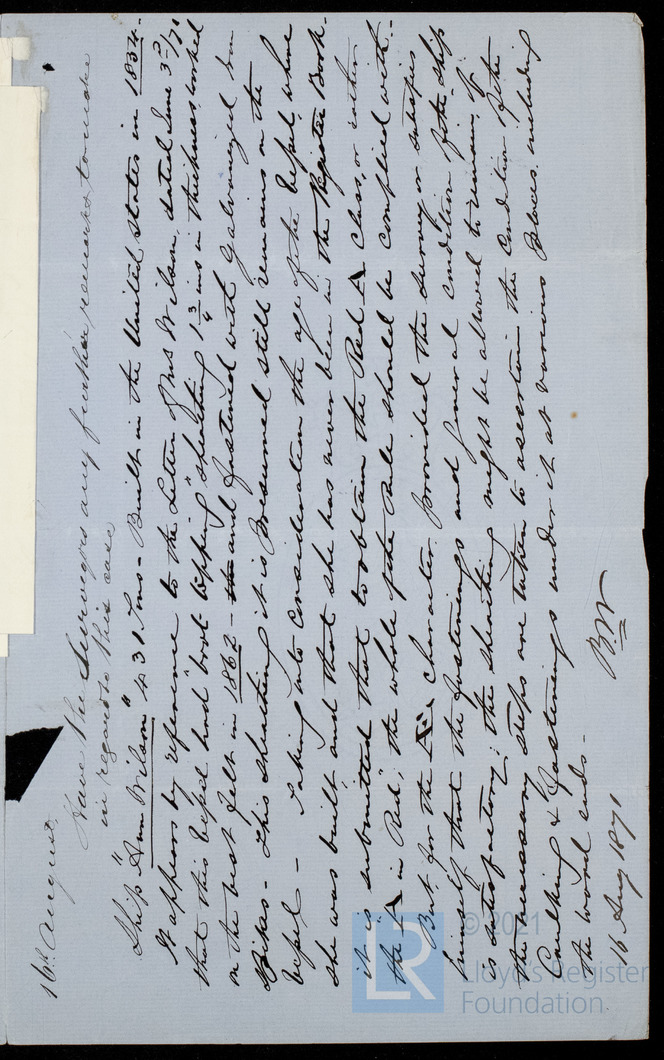 16th August.
Have the Surveyors any further remarks to make
in regard to this case
Ship "Ann Wilson" 431 Tons - Built in the United States in 1834.
It appears by reference to the Letter of Mr Wilson, dated June 3d/70
that this Vessel had "boot topping" sheathing 1 3/4 ins in thickness, worked
on the best felt in 1862 - and fastened with Galvanized Iron
Spikes - This sheathing it is presumed still remains on the
Vessel - Taking into consideration the age of the Vessel, when
she was built and that she has never been in the Register Book -
it is submitted that to obtain the Red A Class, or either
the A in Red; the whole of the Rule should be complied with -
But for the Æ Character provided the surveyor satisfies
himself that the fastenings and general condition of the ship
is satisfactory; the sheathing might be allowed to remain, if
the necessary steps are taken to ascertain the Condition of the
Caulking & fastenings under it at various Places including
the wood ends -
BW
16 Aug 1871
LR
© 2021
Lloyd's Register
Foundation